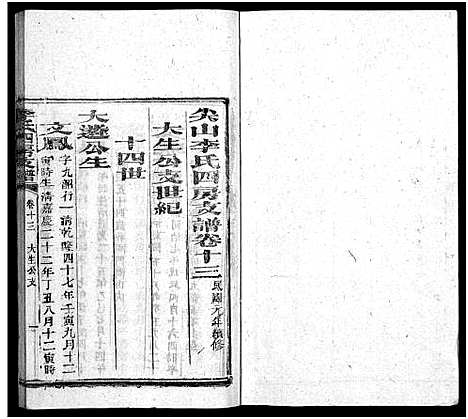 尖山李氏四房支譜卷十三 民國元年續修
大生公支世紀
十四世
大遊公生
文鳳 字九韶行一清乾隆四十七年壬寅九月十二
寅時生清嘉慶二十二年丁丑八月十二寅時
李氏四房支譜 卷十三 大生公支 一